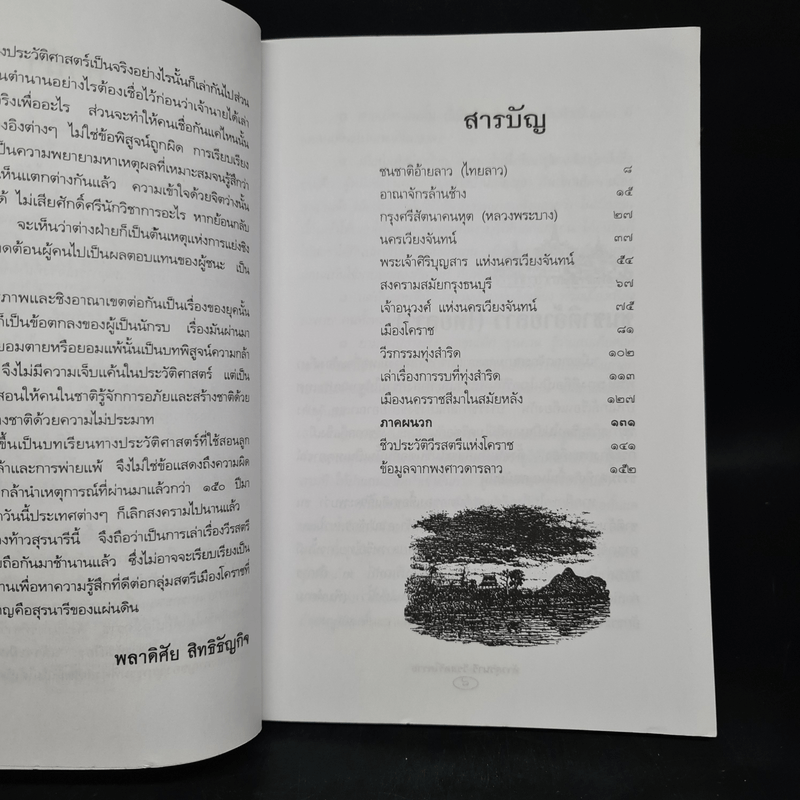 งประวัติศาสตร์เป็นจริงอย่างไรนั้นก็เล่ากันไปส่วน
นตำนานอย่างไรต้องเชื่อไว้ก่อนว่าเจ้านายได้เล่า
ริงเพื่ออะไร ส่วนจะทำให้คนเชื่อกันแค่ไหนนั้น
งอิงต่างๆ ไม่ใช่ข้อพิสูจน์ถูกผิด การเรียบเรียง
ป็นความพยายามหาเหตุผลที่เหมาะสมจนรู้สึกว่า
เห็นแตกต่างกันแล้ว ความเข้าใจด้วยจิตว่างนั้น
ด้ ไม่เสียศักดิ์ศรีนักวิชาการอะไร หากย้อนกลับ
จะเห็นว่าต่างฝ่ายก็เป็นต้นเหตุแห่งการแย่งชิง
วดต้อนผู้คนไปเป็นผลตอบแทนของผู้ชนะ เป็น
รภาพและชิงอาณาเขตต่อกันเป็นเรื่องของยุคนั้น
ก็เป็นข้อตกลงของผู้เป็นนักรบ เรื่องมันผ่านมา
ยอมตายหรือยอมแพ้นั้นเป็นบทพิสูจน์ความกล้า
จึงไม่มีความเจ็บแค้นในประวัติศาสตร์ แต่เป็น
สอนให้คนในชาติรู้จักการอภัยและสร้างชาติด้วย
างชาติด้วยความไม่ประมาท
ขึ้นเป็นบทเรียนทางประวัติศาสตร์ที่ใช้สอนลูก
ล้าและการพ่ายแพ้ จึงไม่ใช่ข้อแสดงถึงความผิด
กล้านำเหตุการณ์ที่ผ่านมาแล้วกว่า ๑๕๐ ปีมา
าวันนี้ประเทศต่างๆ ก็เลิกสงครามไปนานแล้ว
งท้าวสุรนารีนี้ จึงถือว่าเป็นการเล่าเรื่องวีรสตรี
บถือกันมาช้านานแล้ว ซึ่งไม่อาจจะเรียบเรียงเป็น
านเพื่อหาความรู้สึกที่ดีต่อกลุ่มสตรีเมืองโคราชที่
าญคือสุรนารีของแผ่นดิน
พลาดิศัย สิทธิธัญกิจ
สารบัญ
ชนชาติอ้ายลาว (ไทยลาว) ๘
อาณาจักรล้านช้าง ๑๕
กรุงศรีสัตนาคนหุต (หลวงพระบาง) ๒๗
นครเวียงจันทน์ ๓๗
พระเจ้าศิริบุญสาร แห่งนครเวียงจันทน์ ๕๔
สงครามสมัยกรุงธนบุรี ๖๗
เจ้าอนุวงศ์ แห่งนครเวียงจันทน์ ๗๕
เมืองโคราช ๘๑
วีรกรรมทุ่งสำริด ๑๐๒
เล่าเรื่องการรบที่ทุ่งสำริด ๑๑๓
เมืองนครราชสีมาในสมัยหลัง ๑๒๗
ภาคผนวก ๑๓๑
ชีวประวัติวีรสตรีแห่งโคราช ๑๔๑
ข้อมูลจากพงศาวดารลาว ๑๕๒